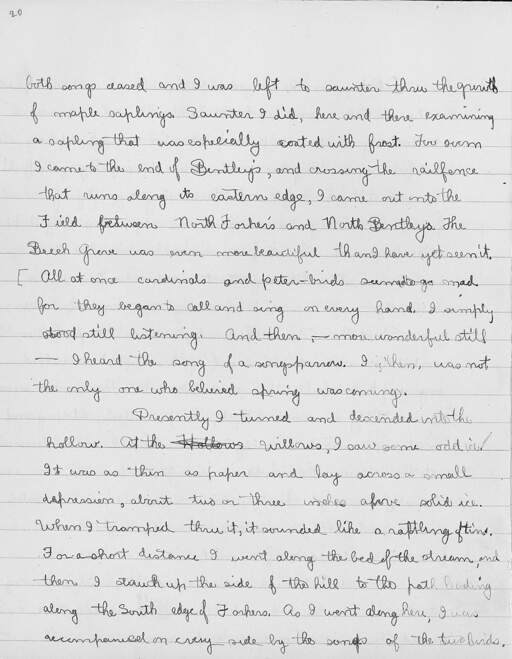 20
both songs ceased and I was left to saunter thru the growth
of maple saplings. Saunter I did, here and there examining
a sapling that was especially coated with frost. Too soon
I came to the end of Bentley's, and crossing the railfence
that runs along its eastern edge, I came out into the
Field between North Forker's and North Bentleys. The
Beech Grove was even more beautiful than I have yet seen it.
[ All at once cardinals and peter-birds seemed to go mad
for they began to call and sing on every hand. I simply
stood still listening. And then, — more wonderful still
— I heard the song of a songsparrow. I, then, was not
the only one who believed spring was coming.
Presently I turned and descended into the
hollow. At the Hollows willows, I saw some odd ice.
It was as thin as paper and lay across a small
depression, about two or three inches above solid ice.
When I tramped thru it, it sounded like a rattling of tin.
For a short distance I went along the bed of the stream, and
then I struck up the side of the hill to the path leading
along the South edge of Forkers. As I went along here, I was
accompanied on every side by the songs of the two birds.